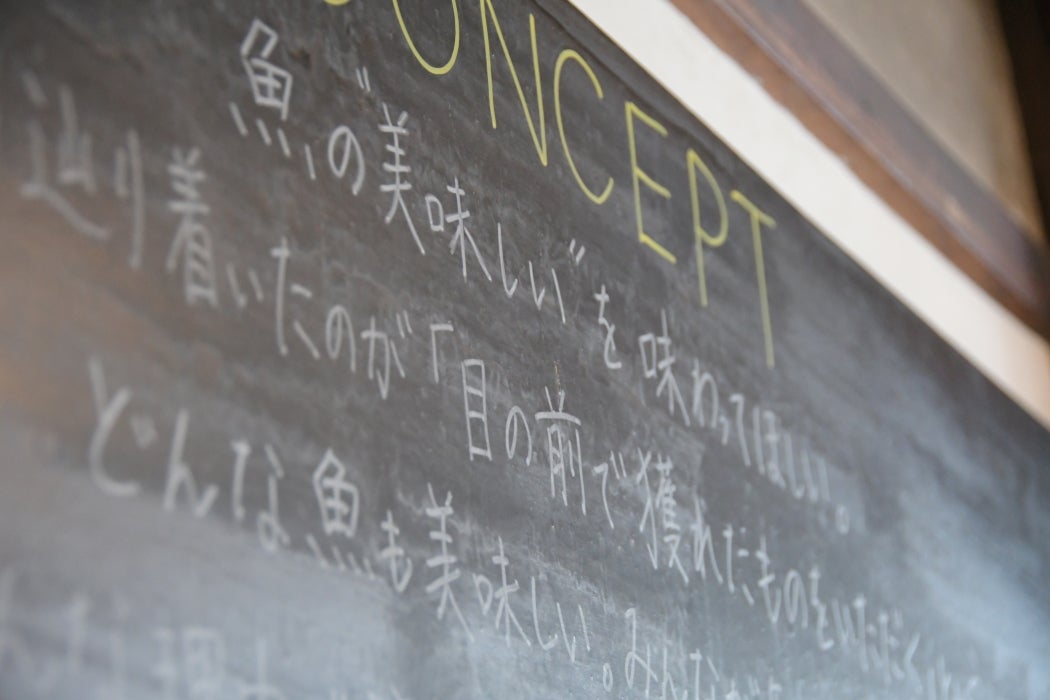 CONCEPT
魚の“美味しい”を味わってほしい。
辿り着いたのが「目の前で獲れたものをいただく
どんな魚も美味しい。みんな